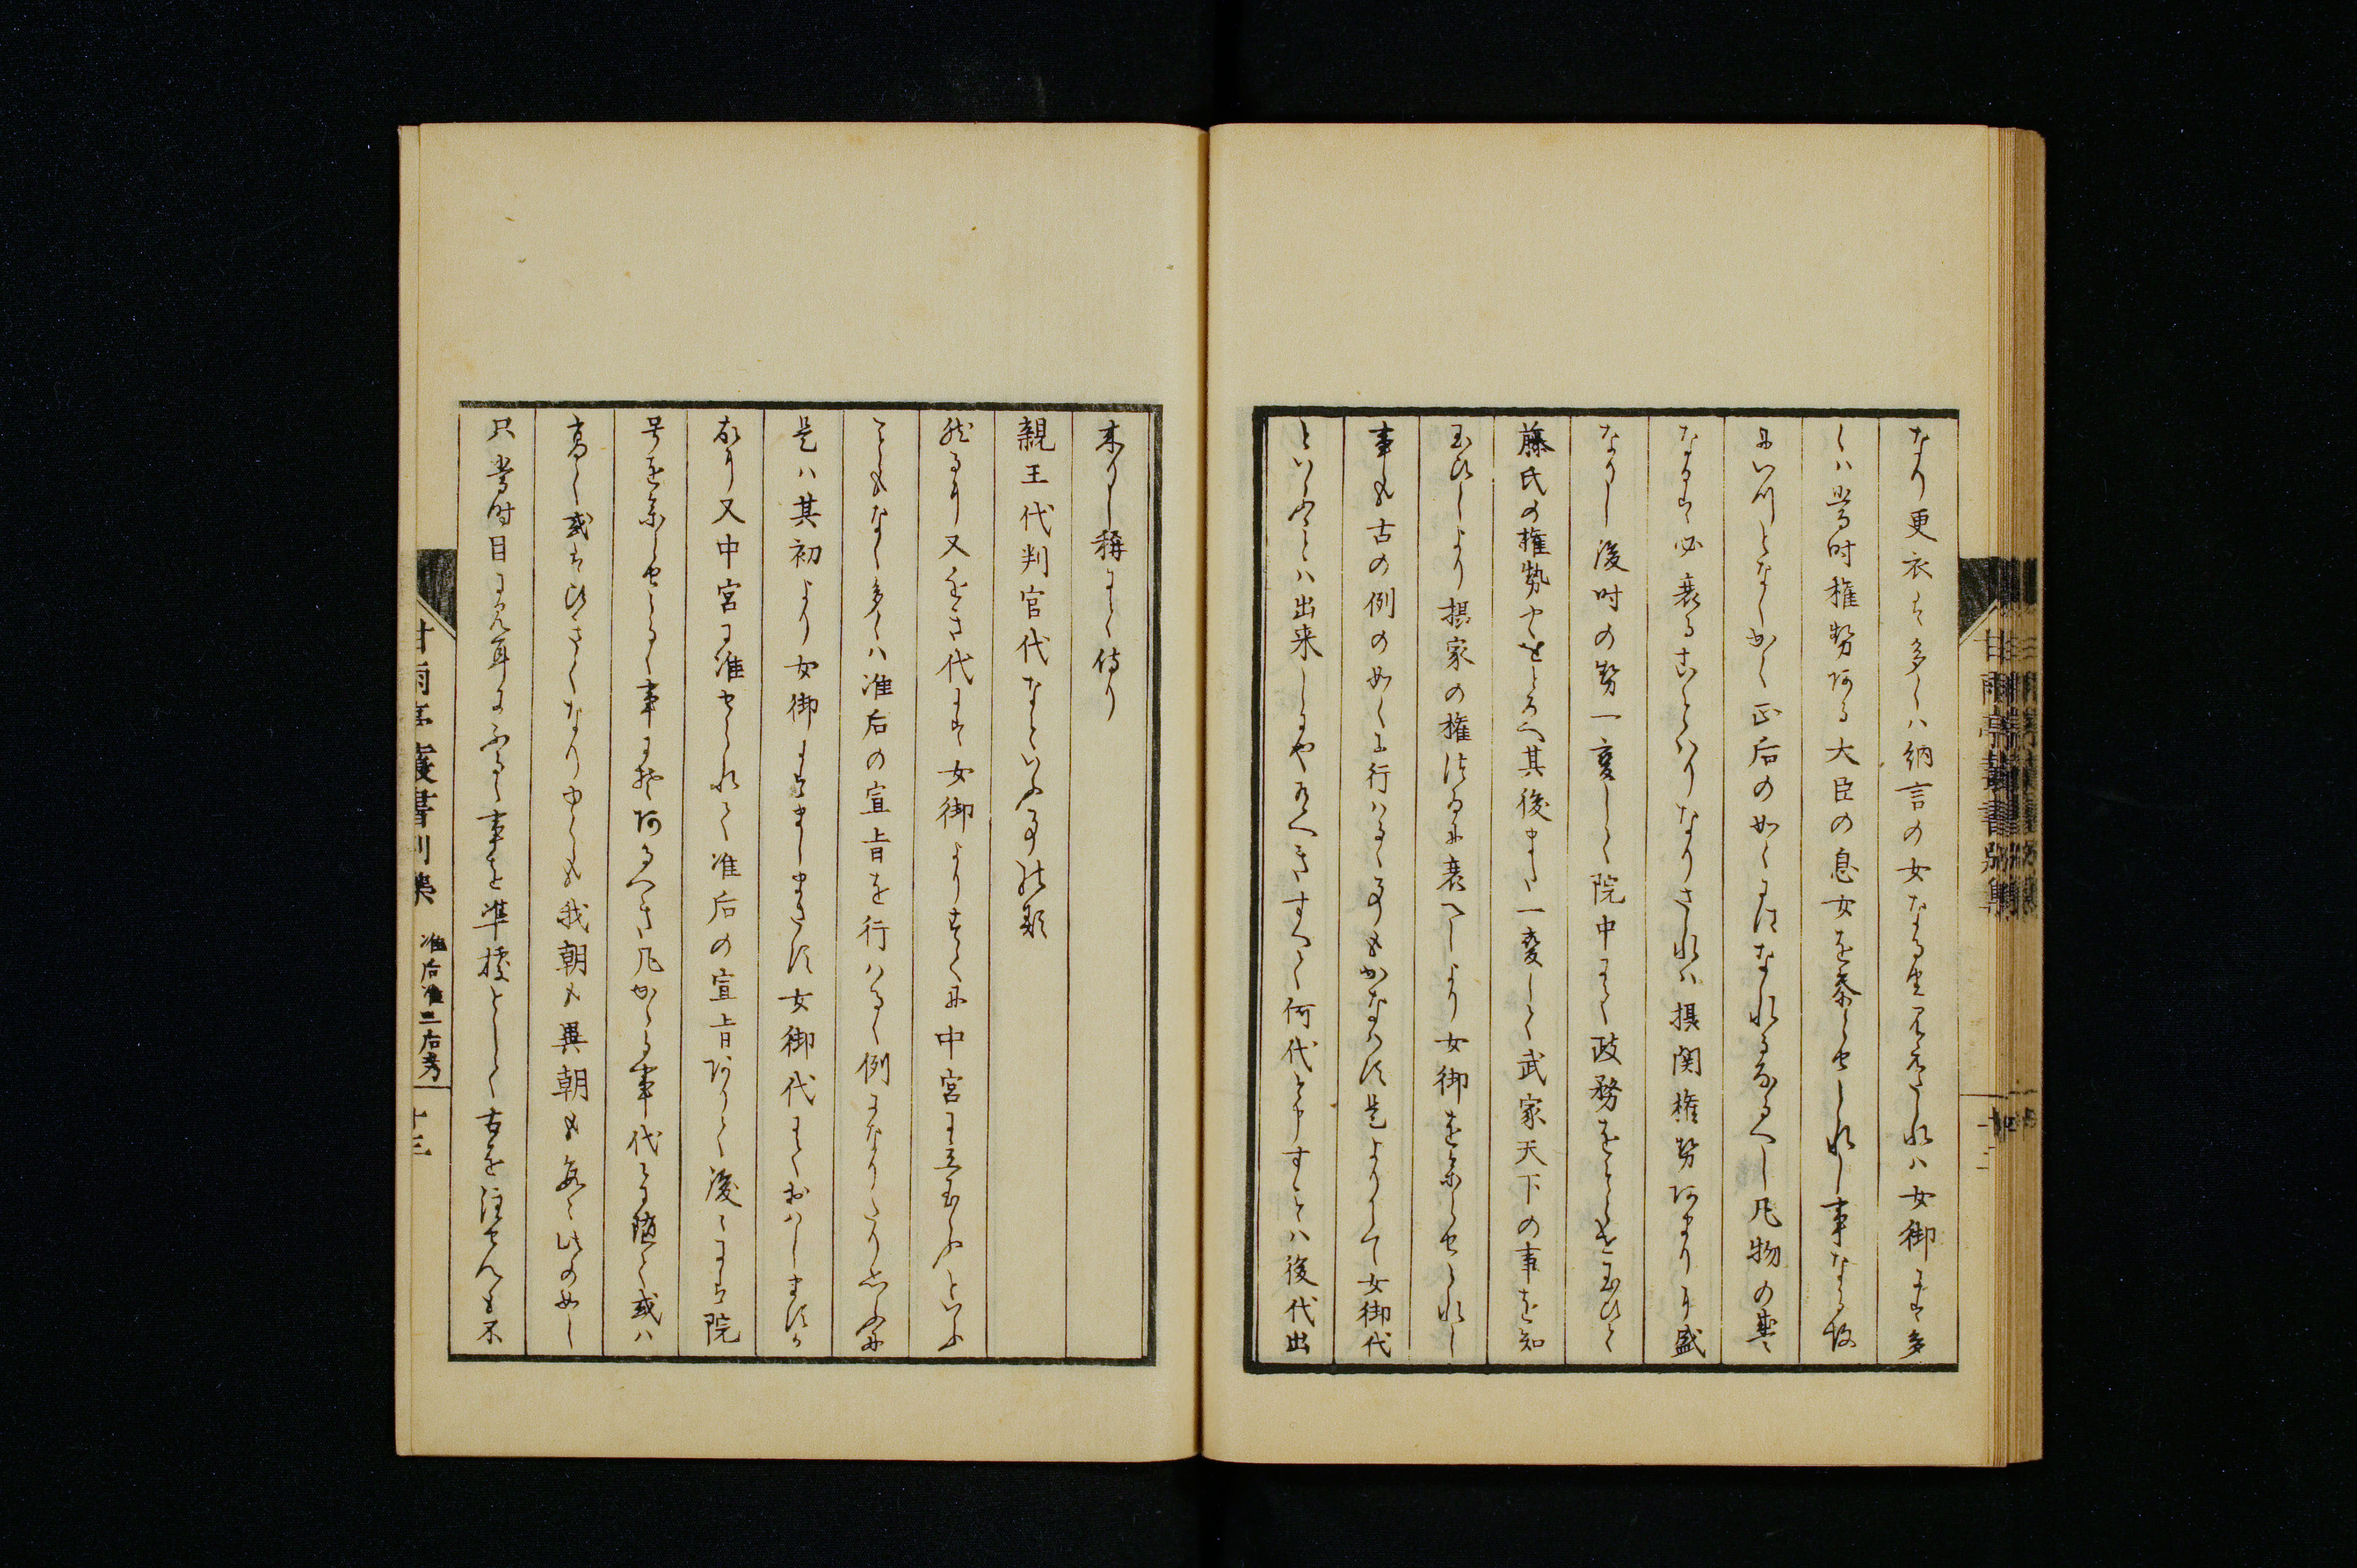 なり更衣は多くハ納言の女なる由見えたれハ女御にハ多
くハ当時権勢ある大臣の息女を参らせられし事なる故
にいつとなくかく正后の如くにはなれるなるへし凡物の
なれハ必衰ることはりなりされハ摂関権勢あまりに盛
なりし後時の勢一変して院中にて政務をとらせ玉ひて
藤氏の権勢やゝをとろへ其後また一変して武家天下の事を知
玉ひしより摂家の権つゐに衰へしより女御を参らせられし
事も古の例の如くに行ハるゝ事もかなハす是よりして女御代
といふ事ハ出来しにやあるへきすへて何代と申すことハ後代出
来りし稱にて侍り
親王代判官代なといふ事の類
然るに又近き代にハ女御よりすくに中宮に立玉ふといふ
こともなく多くハ准后の宣旨を行ハるゝ例になりたり
是ハ其初より女御にはましまさす女御代にておハしますか
故に又中宮に准せられて准后の宣旨ありて後にハ院
号を参らせらるゝ事にそあるへき凡かゝる事代に随て或ハ
高く或はひきくなりゆくも我朝も異朝も每々此の如し
只当時目に見耳にふるゝ事を準據として古を注せんも不
甘雨亭叢書別集 准后准三后考 十三